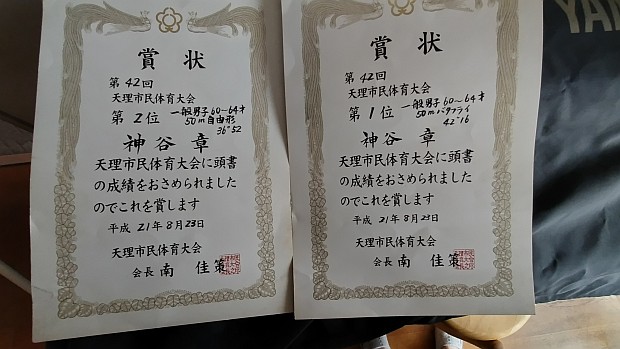 賞状
第42回
天理市民体育大会
第2位 一般男子60~64才
50m自由形
36"52
神谷 章
天理市民体育大会に頭書
の成績をおさめられました
のでこれを賞します
平成 21年8月23日
天理市民体育大会
会長 南 佳策
賞状
第42回
天理市民体育大会
第1位 一般男子60~64才
50mバタフライ
42"16
神谷 章
天理市民体育大会に頭書
の成績をおさめられました
のでこれを賞します
平成 21年8月23日
天理市民体育大会
会長 南 佳策